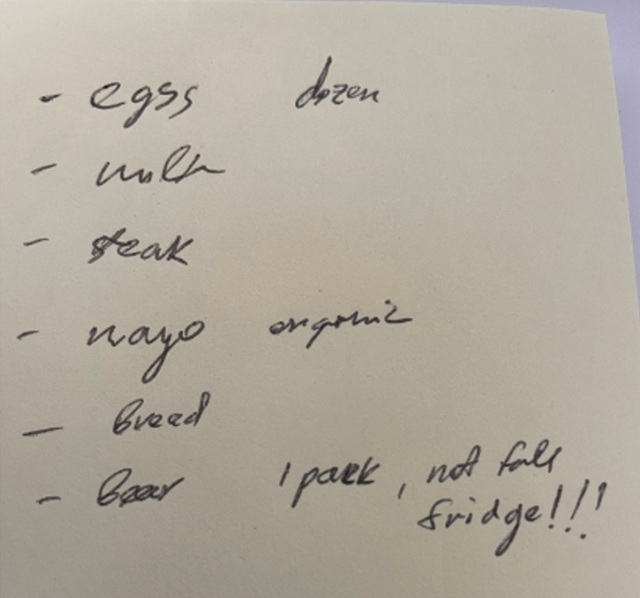 - egss dozen
- milk
- steak
- mayo organic
- bread
- beer 1 pack, not full
fridge!!!